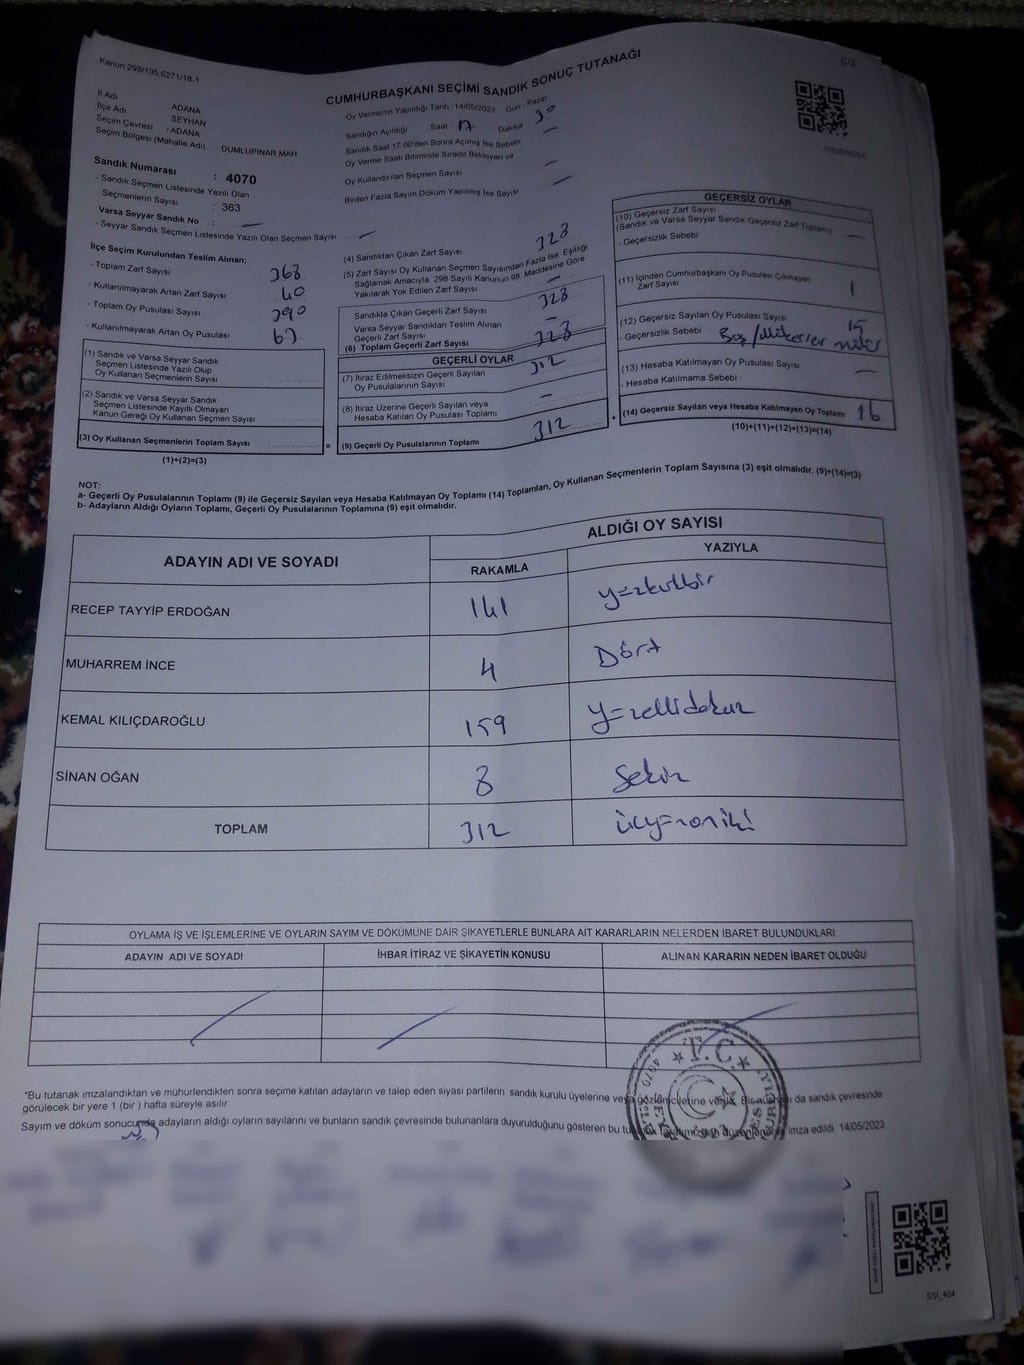 Kanun:298/105,6271/18-1
C/2
CUMHURBAŞKANI SEÇİMİ SANDIK SONUÇ TUTANAĞI
İl Adı ADANA
İlçe Adı SEYHAN
Seçim Çevresi : ADANA
Seçim Bölgesi (Mahalle Adı) DUMLUPINAR MAH
Oy Vermenin Yapıldığı Tarih : 14/05/2023 Gün : Pazar
Sandığın Açıldığı Saat 17 Dakika 30
Sandık Saat 17:00'den Sonra Açılmış İse Sebebi —
Oy Verme Saati Bitiminde Sırada Bekleyen ve
Oy Kullandırılan Seçmen Sayısı —
Birden Fazla Sayım Döküm Yapılmış İse Sayısı —
Sandık Numarası : 4070
- Sandık Seçmen Listesinde Yazılı Olan
Seçmenlerin Sayısı : 363
Varsa Seyyar Sandık No : —
- Seyyar Sandık Seçmen Listesinde Yazılı Olan Seçmen Sayısı : —
İlçe Seçim Kurulundan Teslim Alınan;
- Toplam Zarf Sayısı 368
- Kullanılmayarak Artan Zarf Sayısı 40
- Toplam Oy Pusulası Sayısı 390
- Kullanılmayarak Artan Oy Pusulası
(1) Sandık ve Varsa Seyyar Sandık
Seçmen Listesinde Yazılı Olup
Oy Kullanan Seçmenlerin Sayısı
(2) Sandık ve Varsa Seyyar Sandık
Seçmen Listesinde Kayıtlı Olmayan
Kanun Gereği Oy Kullanan Seçmen Sayısı
(3) Oy Kullanan Seçmenlerin Toplam Sayısı
(1)+(2)=(3)
(4) Sandıktan Çıkan Zarf Sayısı 328
(5) Zarf Sayısı Oy Kullanan Seçmen Sayısından Fazla İse, Eşitliği
Sağlamak Amacıyla, 298 Sayılı Kanunun 98. Maddesine Göre
Yakılarak Yok Edilen Zarf Sayısı —
Sandıkta Çıkan Geçerli Zarf Sayısı 328
Varsa Seyyar Sandıktan Teslim Alınan
Geçerli Zarf Sayısı —
(6) Toplam Geçerli Zarf Sayısı 328
GEÇERLİ OYLAR
(7) İtiraz Edilmeksizin Geçerli Sayılan
Oy Pusulalarının Sayısı 312
(8) İtiraz Üzerine Geçerli Sayılan veya
Hesaba Katılan Oy Pusulası Toplamı —
(9) Geçerli Oy Pusulalarının Toplamı 312
GEÇERSİZ OYLAR
(10) Geçersiz Zarf Sayısı
(Sandık ve Varsa Seyyar Sandık Geçersiz Zarf Toplamı) —
- Geçersizlik Sebebi :
(11) İçinden Cumhurbaşkanı Oy Pusulası Çıkmayan
Zarf Sayısı 1
(12) Geçersiz Sayılan Oy Pusulası Sayısı 15
- Geçersizlik Sebebi : Boş/Mükerrer mühür
(13) Hesaba Katılmayan Oy Pusulası Sayısı —
- Hesaba Katılmama Sebebi :
(14) Geçersiz Sayılan veya Hesaba Katılmayan Oy Toplamı 16
(10)+(11)+(12)+(13)=(14)
NOT:
a- Geçerli Oy Pusulalarının Toplamı (9) ile Geçersiz Sayılan veya Hesaba Katılmayan Oy Toplamı (14) Toplamları, Oy Kullanan Seçmenlerin Toplam Sayısına (3) eşit olmalıdır. (9)+(14)=(3)
b- Adayların Aldığı Oyların Toplamı, Geçerli Oy Pusulalarının Toplamına (9) eşit olmalıdır.
ADAYIN ADI VE SOYADI
ALDIĞI OY SAYISI
RAKAMLA YAZIYLA
RECEP TAYYİP ERDOĞAN 141 yüzkırkbir
MUHARREM İNCE 4 Dört
KEMAL KILIÇDAROĞLU 159 yüzellidokuz
SİNAN OĞAN 8 Sekiz
TOPLAM 312 üçyüzoniki
OYLAMA İŞ VE İŞLEMLERİNE VE OYLARIN SAYIM VE DÖKÜMÜNE DAİR ŞİKAYETLERLE BUNLARA AİT KARARLARIN NELERDEN İBARET BULUNDUKLARI
ADAYIN ADI VE SOYADI İHBAR İTİRAZ VE ŞİKAYETİN KONUSU ALINAN KARARIN NEDEN İBARET OLDUĞU
*Bu tutanak imzalandıktan ve mühürlendikten sonra seçime katılan adayların ve talep eden siyasi partilerin sandık kurulu üyelerine veya gözlemcilerine verilir. Bir da sandık çevresinde
görülecek bir yere 1 (bir ) hafta süreyle asılır.
Sayım ve döküm sonucunda adayların aldığı oyların sayılarını ve bunların sandık çevresinde bulunanlara duyurulduğunu gösteren bu tutanak düzenlenerek imza edildi. 14/05/2023
T.C.
4070
SSI_404